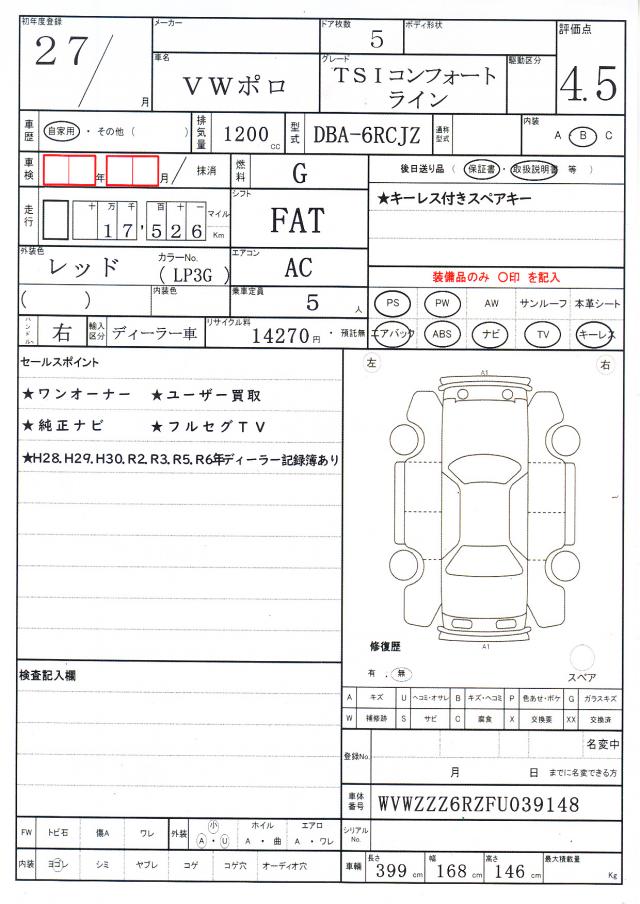 初年度登録 メーカー ドア枚数 ボディ形状 評価点
27/ 月 5
車名 グレード 駆動区分
VWポロ TSIコンフォートライン 4.5
車歴 自家用・その他( ) 排気量 1200cc 型式 DBA-6RCJZ 通称型式 内装 A・B C
車検 年 月/ 抹消 燃料 G 後日送り品(保証書・取扱説明書 等)
★キーレス付きスペアキー
走行 十万千百十一 マイル Km シフト
17,526 FAT
外装色 カラーNo. エアコン
レッド (LP3G) AC
装備品のみ 〇印 を記入
( ) 内装色 乗車定員 5人
PS PW AW サンルーフ 本革シート
ハンドル 右 輸入区分 ディーラー車 リサイクル料 14270円・預託無
エアバック ABS ナビ TV キーレス
セールスポイント
★ワンオーナー ★ユーザー買取
★純正ナビ ★フルセグTV
★H28.H29.H30.R2.R3.R5.R6年ディーラー記録簿あり
左 右
A1
A1
修復歴
有 . 無
スペア
検査記入欄
A キズ U ヘコミ・オサレ B キズ・ヘコミ P 色あせ・ボケ G ガラスキズ
W 補修跡 S サビ C 腐食 X 交換要 XX 交換済
登録No. 名変中
月 日 までに名変できる方
車体番号 WVWZZZ6RZFU039148
シリアルNo.
FW トビ石 傷A ワレ 外装 小 A・U ホイール A・曲 エアロ A・ワレ
内装 ヨゴレ シミ ヤブレ コゲ コゲ穴 オーディオ穴
車輌 長さ 399cm 幅 168cm 高さ 146cm 最大積載量 Kg